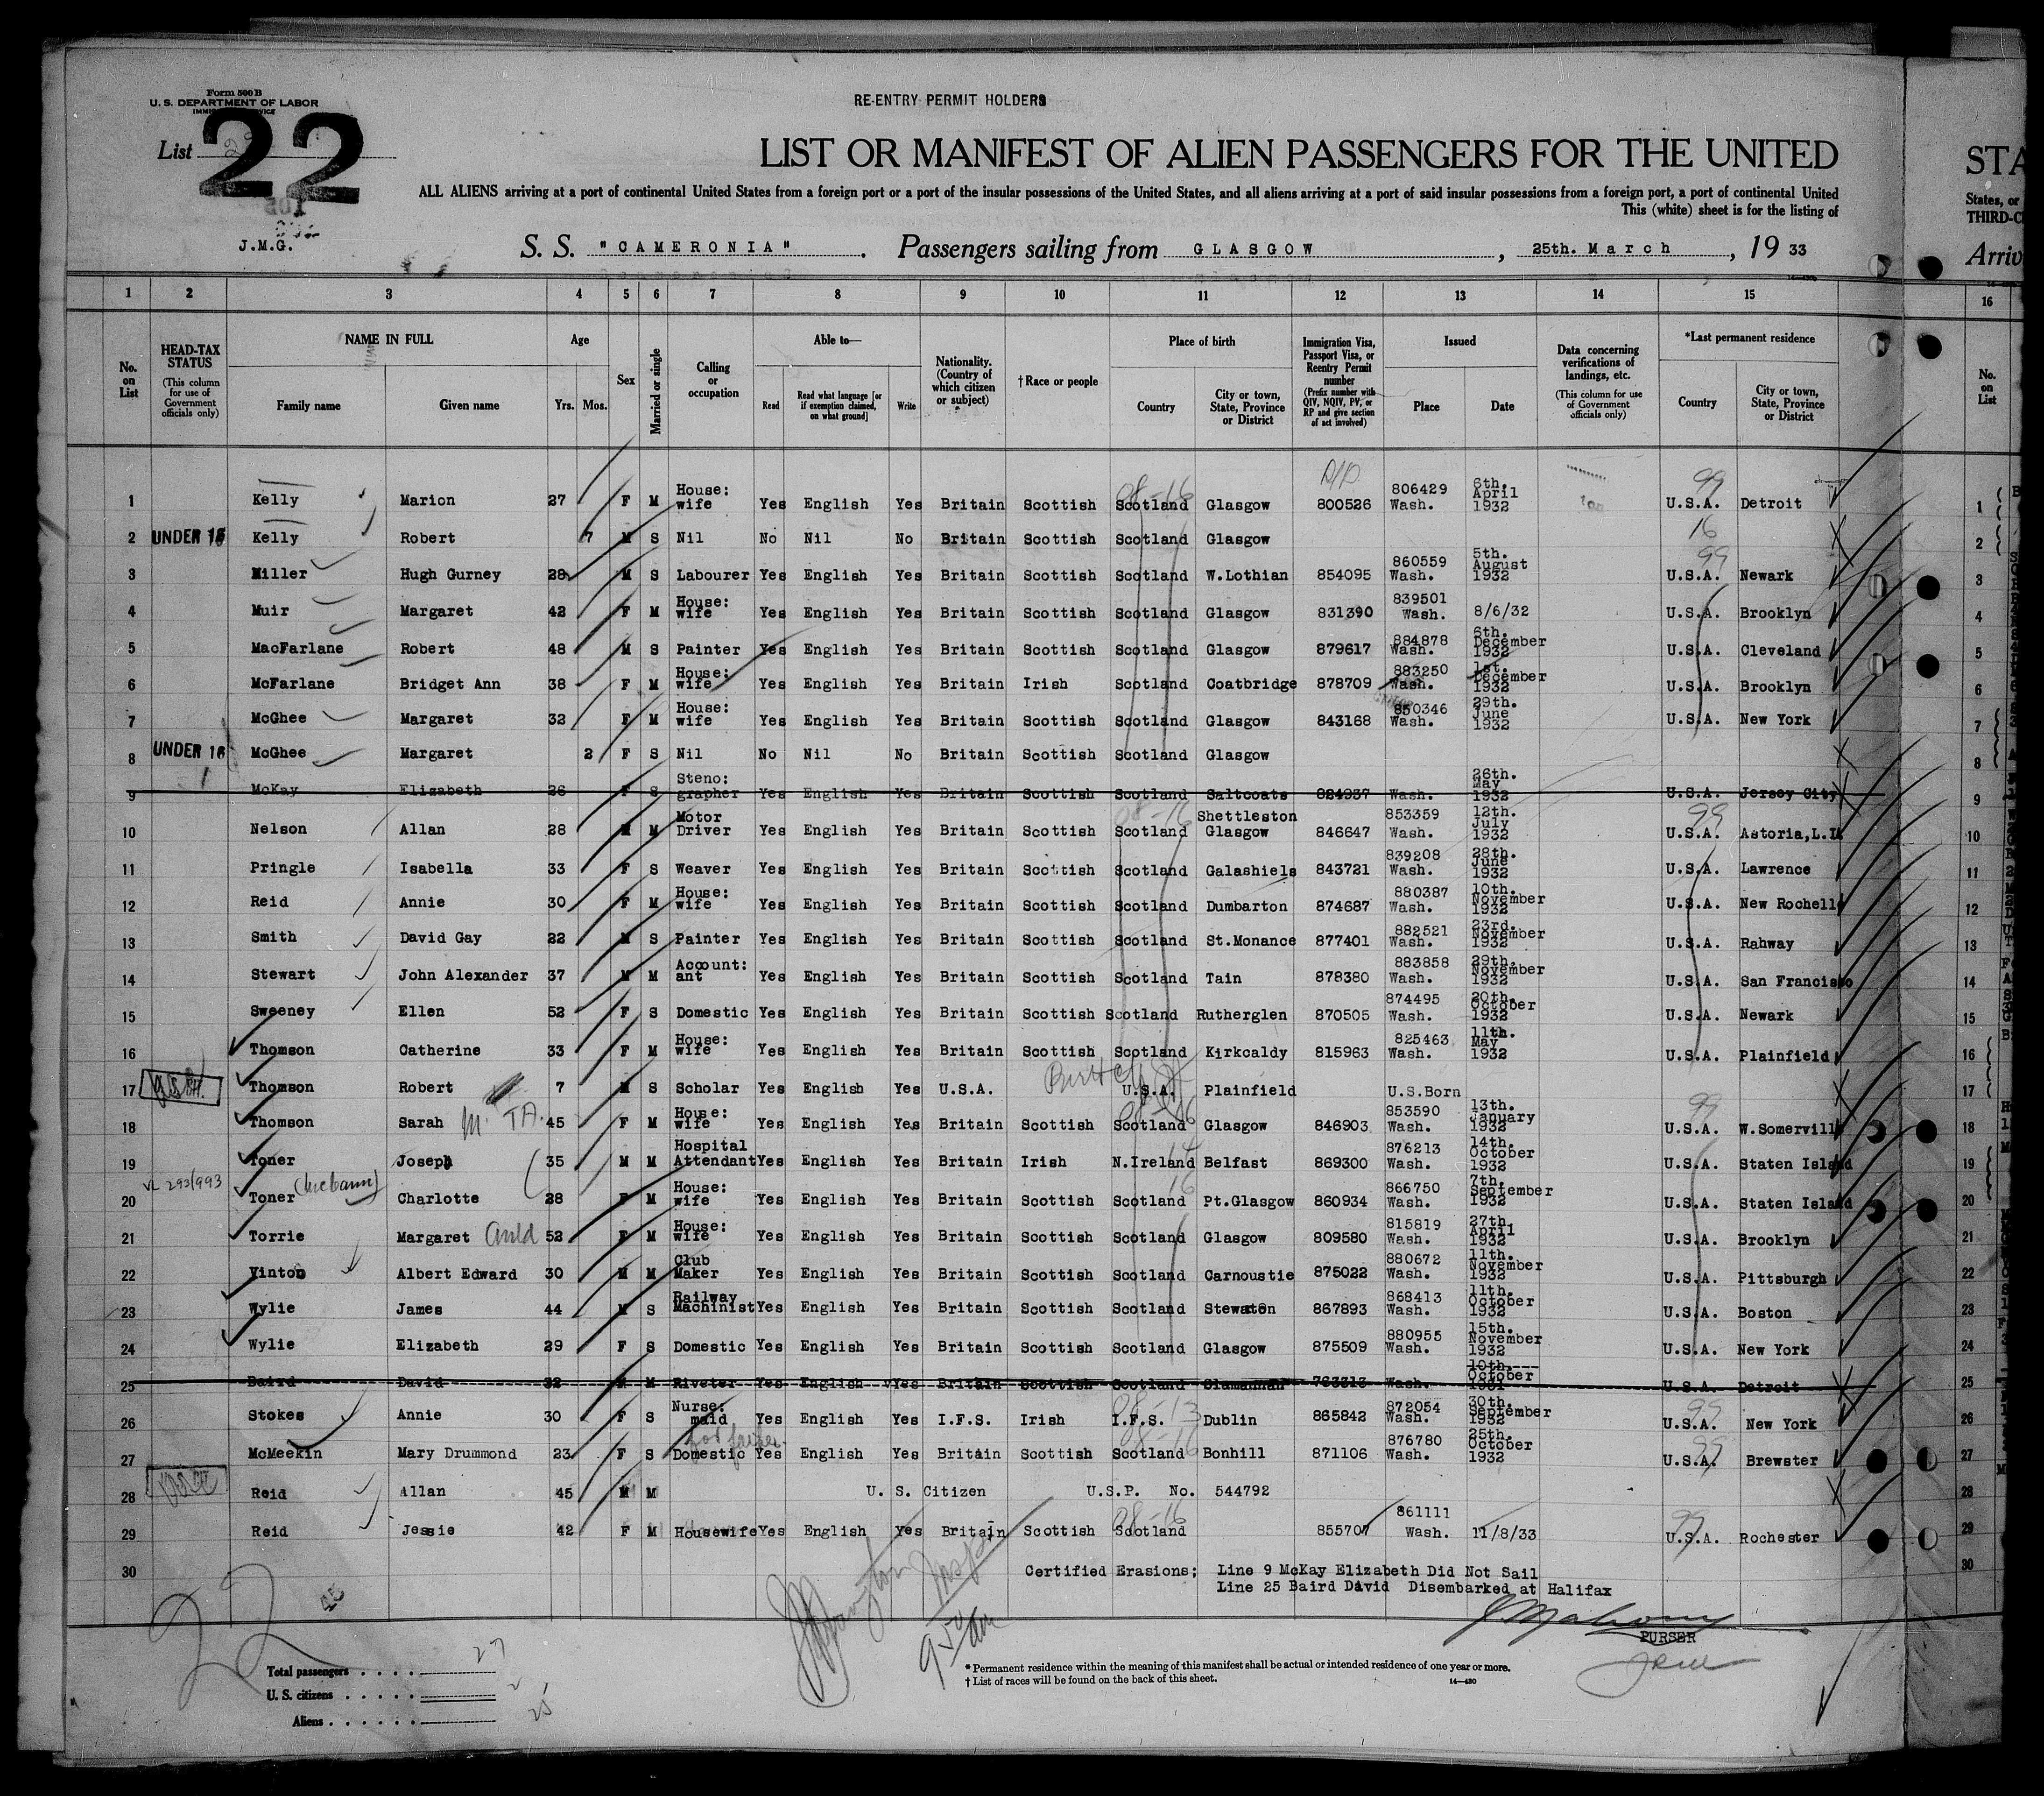 Form 500 B
U. S. DEPARTMENT OF LABOR
RE-ENTRY PERMIT HOLDERS
List 22
LIST OR MANIFEST OF ALIEN PASSENGERS FOR THE UNITED STA
ALL ALIENS arriving at a port of continental United States from a foreign port or a port of the insular possessions of the United States, and all aliens arriving at a port of said insular possessions from a foreign port, a port of continental United States, or
This (white) sheet is for the listing of THIRD-C
J.M.G.
S. S. "CAMERONIA". Passengers sailing from GLASGOW, 25th. March, 19 33 Arriv
1 2 3 4 5 6 7 8 9 10 11 12 13 14 15 16
No. on List
HEAD-TAX STATUS (This column for use of Government officials only)
NAME IN FULL Family name Given name
Age Yrs. Mos.
Sex
Married or single
Calling or occupation
Able to— Read Read what language [or if exemption claimed, on what ground] Write
Nationality. (Country of which citizen or subject)
†Race or people
Place of birth Country City or town, State, Province or District
Immigration Visa, Passport Visa, or Reentry Permit number (Prefix number with QIV, NQIV, PV, or RP and give section of act involved)
Issued Place Date
Data concerning verifications of landings, etc. (This column for use of Government officials only)
*Last permanent residence Country City or town, State, Province or District
No. on List
1 Kelly Marion 27 F M House: wife Yes English Yes Britain Scottish Scotland Glasgow 800526 806429 Wash. 6th. April 1932 U.S.A. Detroit 1
2 UNDER 16 Kelly Robert 7 M S Nil No Nil No Britain Scottish Scotland Glasgow 2
3 Miller Hugh Gurney 28 M S Labourer Yes English Yes Britain Scottish Scotland W.Lothian 854095 860559 Wash. 5th. August 1932 U.S.A. Newark 3
4 Muir Margaret 42 F M House: wife Yes English Yes Britain Scottish Scotland Glasgow 831390 839501 Wash. 8/6/32 U.S.A. Brooklyn 4
5 MacFarlane Robert 48 M S Painter Yes English Yes Britain Scottish Scotland Glasgow 879617 884878 Wash. 6th. December 1932 U.S.A. Cleveland 5
6 McFarlane Bridget Ann 38 F M House: wife Yes English Yes Britain Irish Scotland Coatbridge 878709 883250 Wash. 1st. December 1932 U.S.A. Brooklyn 6
7 McGhee Margaret 32 F M House: wife Yes English Yes Britain Scottish Scotland Glasgow 843168 850346 Wash. 29th. June 1932 U.S.A. New York 7
8 UNDER 16 McGhee Margaret 2 F S Nil No Nil No Britain Scottish Scotland Glasgow 8
9 McKay Elizabeth 26 F S Steno: grapher Yes English Yes Britain Scottish Scotland Saltcoats 824937 Wash. 26th. May 1932 U.S.A. Jersey City 9
10 Nelson Allan 28 M M Motor Driver Yes English Yes Britain Scottish Scotland Shettleston Glasgow 846647 853359 Wash. 12th. July 1932 U.S.A. Astoria,L.I. 10
11 Pringle Isabella 33 F S Weaver Yes English Yes Britain Scottish Scotland Galashiels 843721 839208 Wash. 28th. June 1932 U.S.A. Lawrence 11
12 Reid Annie 30 F M House: wife Yes English Yes Britain Scottish Scotland Dumbarton 874687 880387 Wash. 10th. November 1932 U.S.A. New Rochelle 12
13 Smith David Gay 22 M S Painter Yes English Yes Britain Scottish Scotland St.Monance 877401 882521 Wash. 23rd. November 1932 U.S.A. Rahway 13
14 Stewart John Alexander 37 M M Account: ant Yes English Yes Britain Scottish Scotland Tain 878380 883858 Wash. 29th. November 1932 U.S.A. San Francisco 14
15 Sweeney Ellen 52 F S Domestic Yes English Yes Britain Scottish Scotland Rutherglen 870505 874495 Wash. 20th. October 1932 U.S.A. Newark 15
16 Thomson Catherine 33 F M House: wife Yes English Yes Britain Scottish Scotland Kirkcaldy 815963 825463 Wash. 11th. May 1932 U.S.A. Plainfield 16
17 Thomson Robert 7 M S Scholar Yes English Yes U.S.A. U.S.A. Plainfield U.S.Born 17
18 Thomson Sarah 45 F M House: wife Yes English Yes Britain Scottish Scotland Glasgow 846903 853590 Wash. 13th. January 1932 U.S.A. W.Somerville 18
19 Toner Joseph 35 M M Hospital Attendant Yes English Yes Britain Irish N.Ireland Belfast 869300 876213 Wash. 14th. October 1932 U.S.A. Staten Island 19
20 Toner Charlotte 28 F M House: wife Yes English Yes Britain Scottish Scotland Pt.Glasgow 860934 866750 Wash. 7th. September 1932 U.S.A. Staten Island 20
21 Torrie Margaret Auld 52 F M House: wife Yes English Yes Britain Scottish Scotland Glasgow 809580 815819 Wash. 27th. April 1932 U.S.A. Brooklyn 21
22 Vinton Albert Edward 30 M M Club Maker Yes English Yes Britain Scottish Scotland Carnoustie 875022 880672 Wash. 11th. November 1932 U.S.A. Pittsburgh 22
23 Wylie James 44 M S Railway Machinist Yes English Yes Britain Scottish Scotland Stewaton 867893 868413 Wash. 11th. October 1932 U.S.A. Boston 23
24 Wylie Elizabeth 29 F S Domestic Yes English Yes Britain Scottish Scotland Glasgow 875509 880955 Wash. 15th. November 1932 U.S.A. New York 24
25 Baird David 32 M M Riveter Yes English Yes Britain Scottish Scotland Slamannan 763313 Wash. 10th. October 1931 U.S.A. Detroit 25
26 Stokes Annie 30 F S Nurse: maid Yes English Yes I.F.S. Irish I.F.S. Dublin 865842 872054 Wash. 30th. September 1932 U.S.A. New York 26
27 McMeekin Mary Drummond 23 F S Domestic Yes English Yes Britain Scottish Scotland Bonhill 871106 876780 Wash. 25th. October 1932 U.S.A. Brewster 27
28 Reid Allan 45 M M U. S. Citizen U.S.P. No. 544792 28
29 Reid Jessie 42 F M Housewife Yes English Yes Britain Scottish Scotland 855707 861111 Wash. 11/8/33 U.S.A. Rochester 29
30 Certified Erasions; Line 9 McKay Elizabeth Did Not Sail 30
Line 25 Baird David Disembarked at Halifax
PURSER
22
Total passengers . . . . 27
U. S. citizens . . . . . 2
Aliens . . . . . . 25
* Permanent residence within the meaning of this manifest shall be actual or intended residence of one year or more.
† List of races will be found on the back of this sheet.
14—430